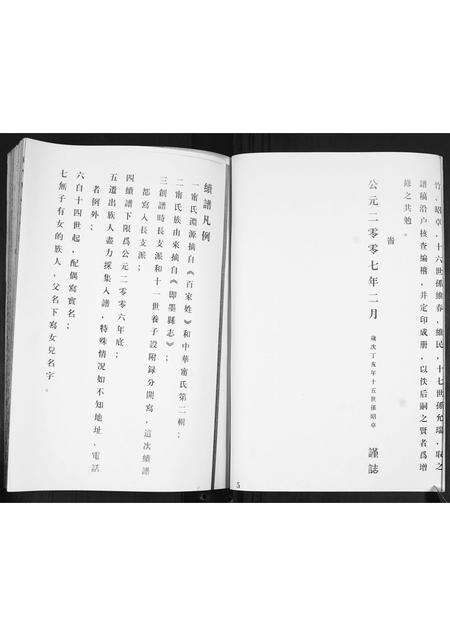 竹，昭卓，十六世孫維春，維民，十七世孫允瑞，取之
譜稿沿户核查編禳，并定印成册，以俟后嗣之賢者爲增
修之共勉。
峕
公元二〇〇七年二月
歲次丁亥年十五世孫昭卓 謹誌
5
續譜凡例
一甯氏淵源摘自《百家姓》和中華甯氏第二輯；
二甯氏族由來摘自《即墨縣志》；
三創譜時長支派和十一世養子設附録分開寫，這次續譜
都寫入長支派；
四續譜下限爲公元二〇〇六年底；
五遷出族人盡力採集入譜，特殊情况如不知地址，電話
者例外；
六自十四世起，配偶寫實名；
七無子有女的族人，父名下寫女兒名字。